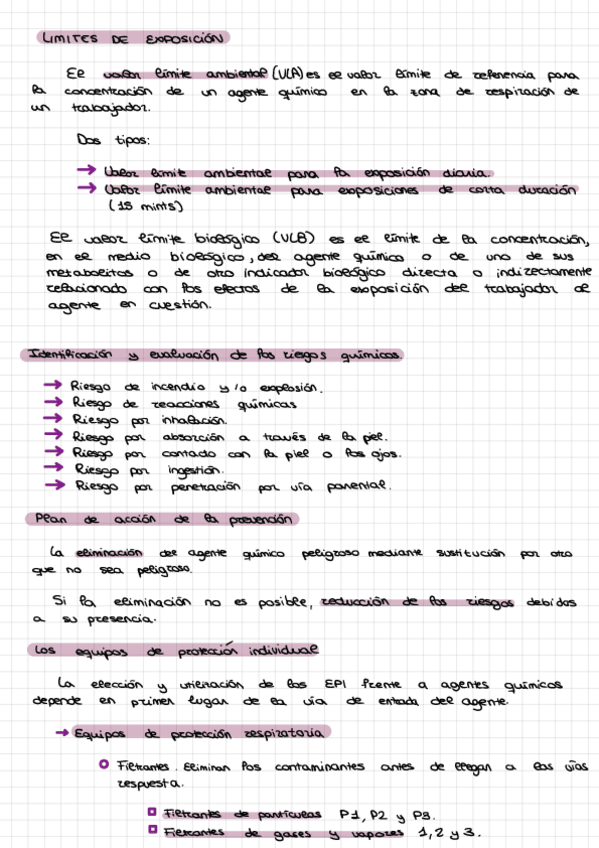 LIMITES DE EXPOSICIÓN
El valor límite ambiental (VLA) es el valor límite de referencia para
la concentración de un agente químico en la zona de respiración de
un trabajador.
Dos tipos:
→ Valor limite ambiental para la exposición diaria.
→ Valor límite ambiental para exposiciones de corta duración
(15 mints)
El valor límite biológico (VLB) es el límite de la concentración,
en el medio biológico, del agente químico o de uno de sus
metabolitos o de otro indicador biológico directa o indirectamente
relacionado con los efectos de la exposición del trabajador al
agente en cuestión.
Identificación y evaluación de los riesgos químicos.
→ Riesgo de incendio y/o explosión.
→ Riesgo de reacciones químicas
→ Riesgo por inhalación.
→ Riesgo por absorción a través de la piel.
→ Riesgo por contacto con la piel o los ojos.
→ Riesgo por ingestión.
→ Riesgo por penetración por vía parental.
Plan de acción de la prevención
La eliminación del agente químico peligroso mediante sustitución por otro
que no sea peligroso.
Si la eliminación no es posible, reducción de los riesgos debidos
a su presencia.
Los equipos de protección individual
La elección y utilización de los EPI frente a agentes químicos
depende en primer lugar de la vía de entada del agente.
→ Equipos de protección respiratoria
Filtrantes. Eliminan los contaminantes antes de llegan a las vías
respuesta.
Filtrantes de partículas P1, P2 y P3.
Filtrantes de gases y vapores 1, 2 y 3.